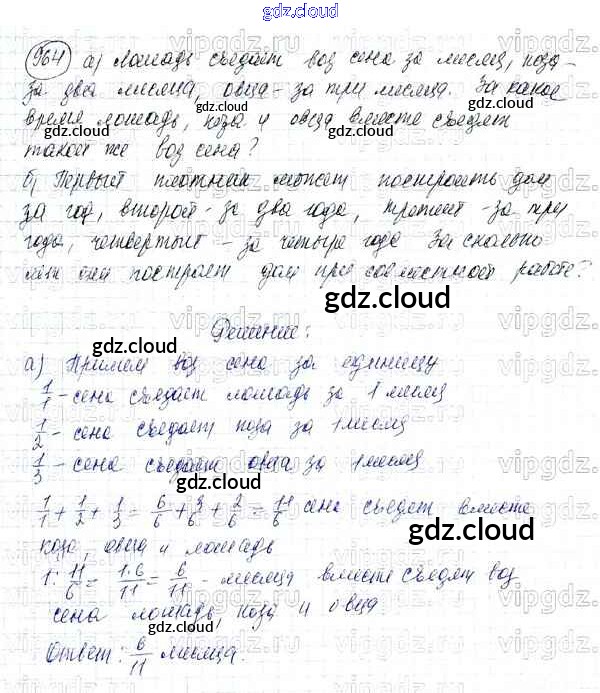 gdz.cloud
964 а) Лошадь съедает воз сена за месяц, коза -
за два месяца, овца - за три месяца. За какое
время лошадь, коза и овца вместе съедят
такой же воз сена?
б) Первый плотник может построить дом
за год, второй - за два года, третий - за три
года, четвертый - за четыре года За сколько
лет они построят дом при совместной работе?
gdz.cloud
Решение:
а) Примем воз сена за единицу
1/1 - сена съедает лошадь за 1 месяц
1/2 - сена съедает коза за 1 месяц
1/3 - сена съедает овца за 1 месяц
1/1 + 1/2 + 1/3 = 6/6 + 3/6 + 2/6 = 11/6 сена съедят вместе
коза, овца и лошадь
1 : 11/6 = 1·6/11 = 6/11 - месяца вместе съедят воз
сена лошадь, коза и овца.
Ответ: 6/11 месяца.